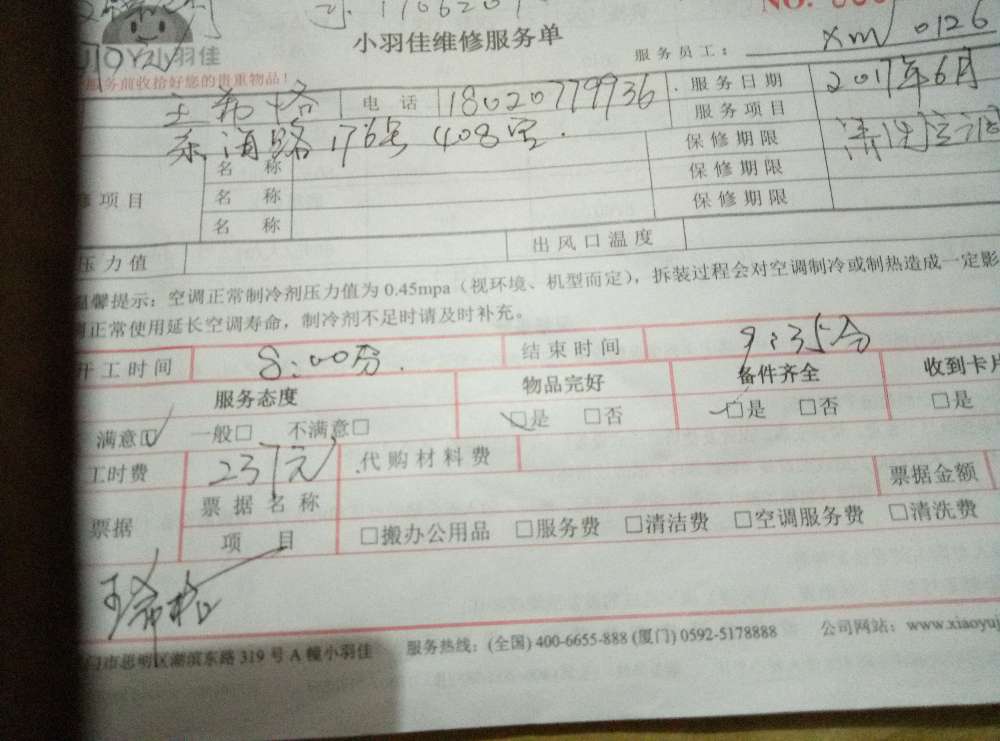 NO.
小羽佳维修服务单
服务员工： xm 0126
小羽佳
服务前收拾好您的贵重物品！
电 话 18020779936 服务日期 2017年6月
路176号 408室. 服务项目
名 称 保修期限 清洗
项目 名 称 保修期限
名 称 保修期限
压力值 出风口温度
温馨提示：空调正常制冷剂压力值为 0.45mpa（视环境、机型而定），拆装过程会对空调制冷或制热造成一定影
正常使用延长空调寿命，制冷剂不足时请及时补充。
开工时间 8:00分. 结束时间 9:35分
服务态度 物品完好 备件齐全 收到卡片
满意□ 一般□ 不满意□ □是 □否 □是 □否 □是
工时费 231元 代购材料费
票据 票据名称 票据金额
项 目 □搬办公用品 □服务费 □清洁费 □空调服务费 □清洗费
门市思明区湖滨东路 319 号 A 幢小羽佳 服务热线：(全国) 400-6655-888 (厦门) 0592-5178888 公司网站：www.xiaoyuj